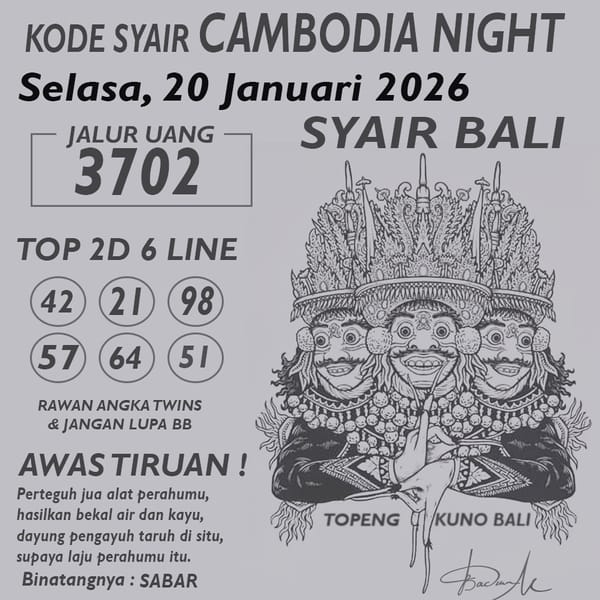 KODE SYAIR CAMBODIA NIGHT
Selasa, 20 Januari 2026
JALUR UANG
3702
SYAIR BALI
TOP 2D 6 LINE
42 21 98
57 64 51
RAWAN ANGKA TWINS
& JANGAN LUPA BB
AWAS TIRUAN !
Perteguh jua alat perahumu,
hasilkan bekal air dan kayu,
dayung pengayuh taruh di situ,
supaya laju perahumu itu.
Binatangnya : SABAR
TOPENG KUNO BALI